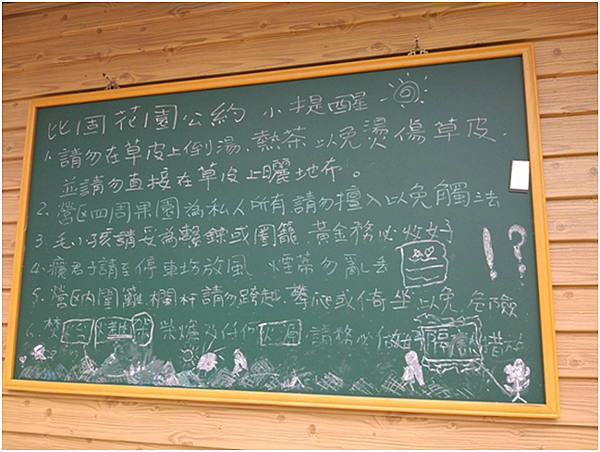 比個花園公約 小提醒
1. 請勿在草皮上倒湯、熱茶以免燙傷草皮.
並請勿直接在草皮上曬地布。
2. 營區四周果園為私人所有請勿擅入以免觸法
3. 毛小孩請妥為繫鍊或圍籠 黃金務必收好
4. 癮君子請至停車場放風 煙蒂勿亂丟
5. 營區內圍籬欄杆請勿跨越、攀爬或倚坐以免危險
6. 禁 柴爐及任何火 請務必做好隔 措施